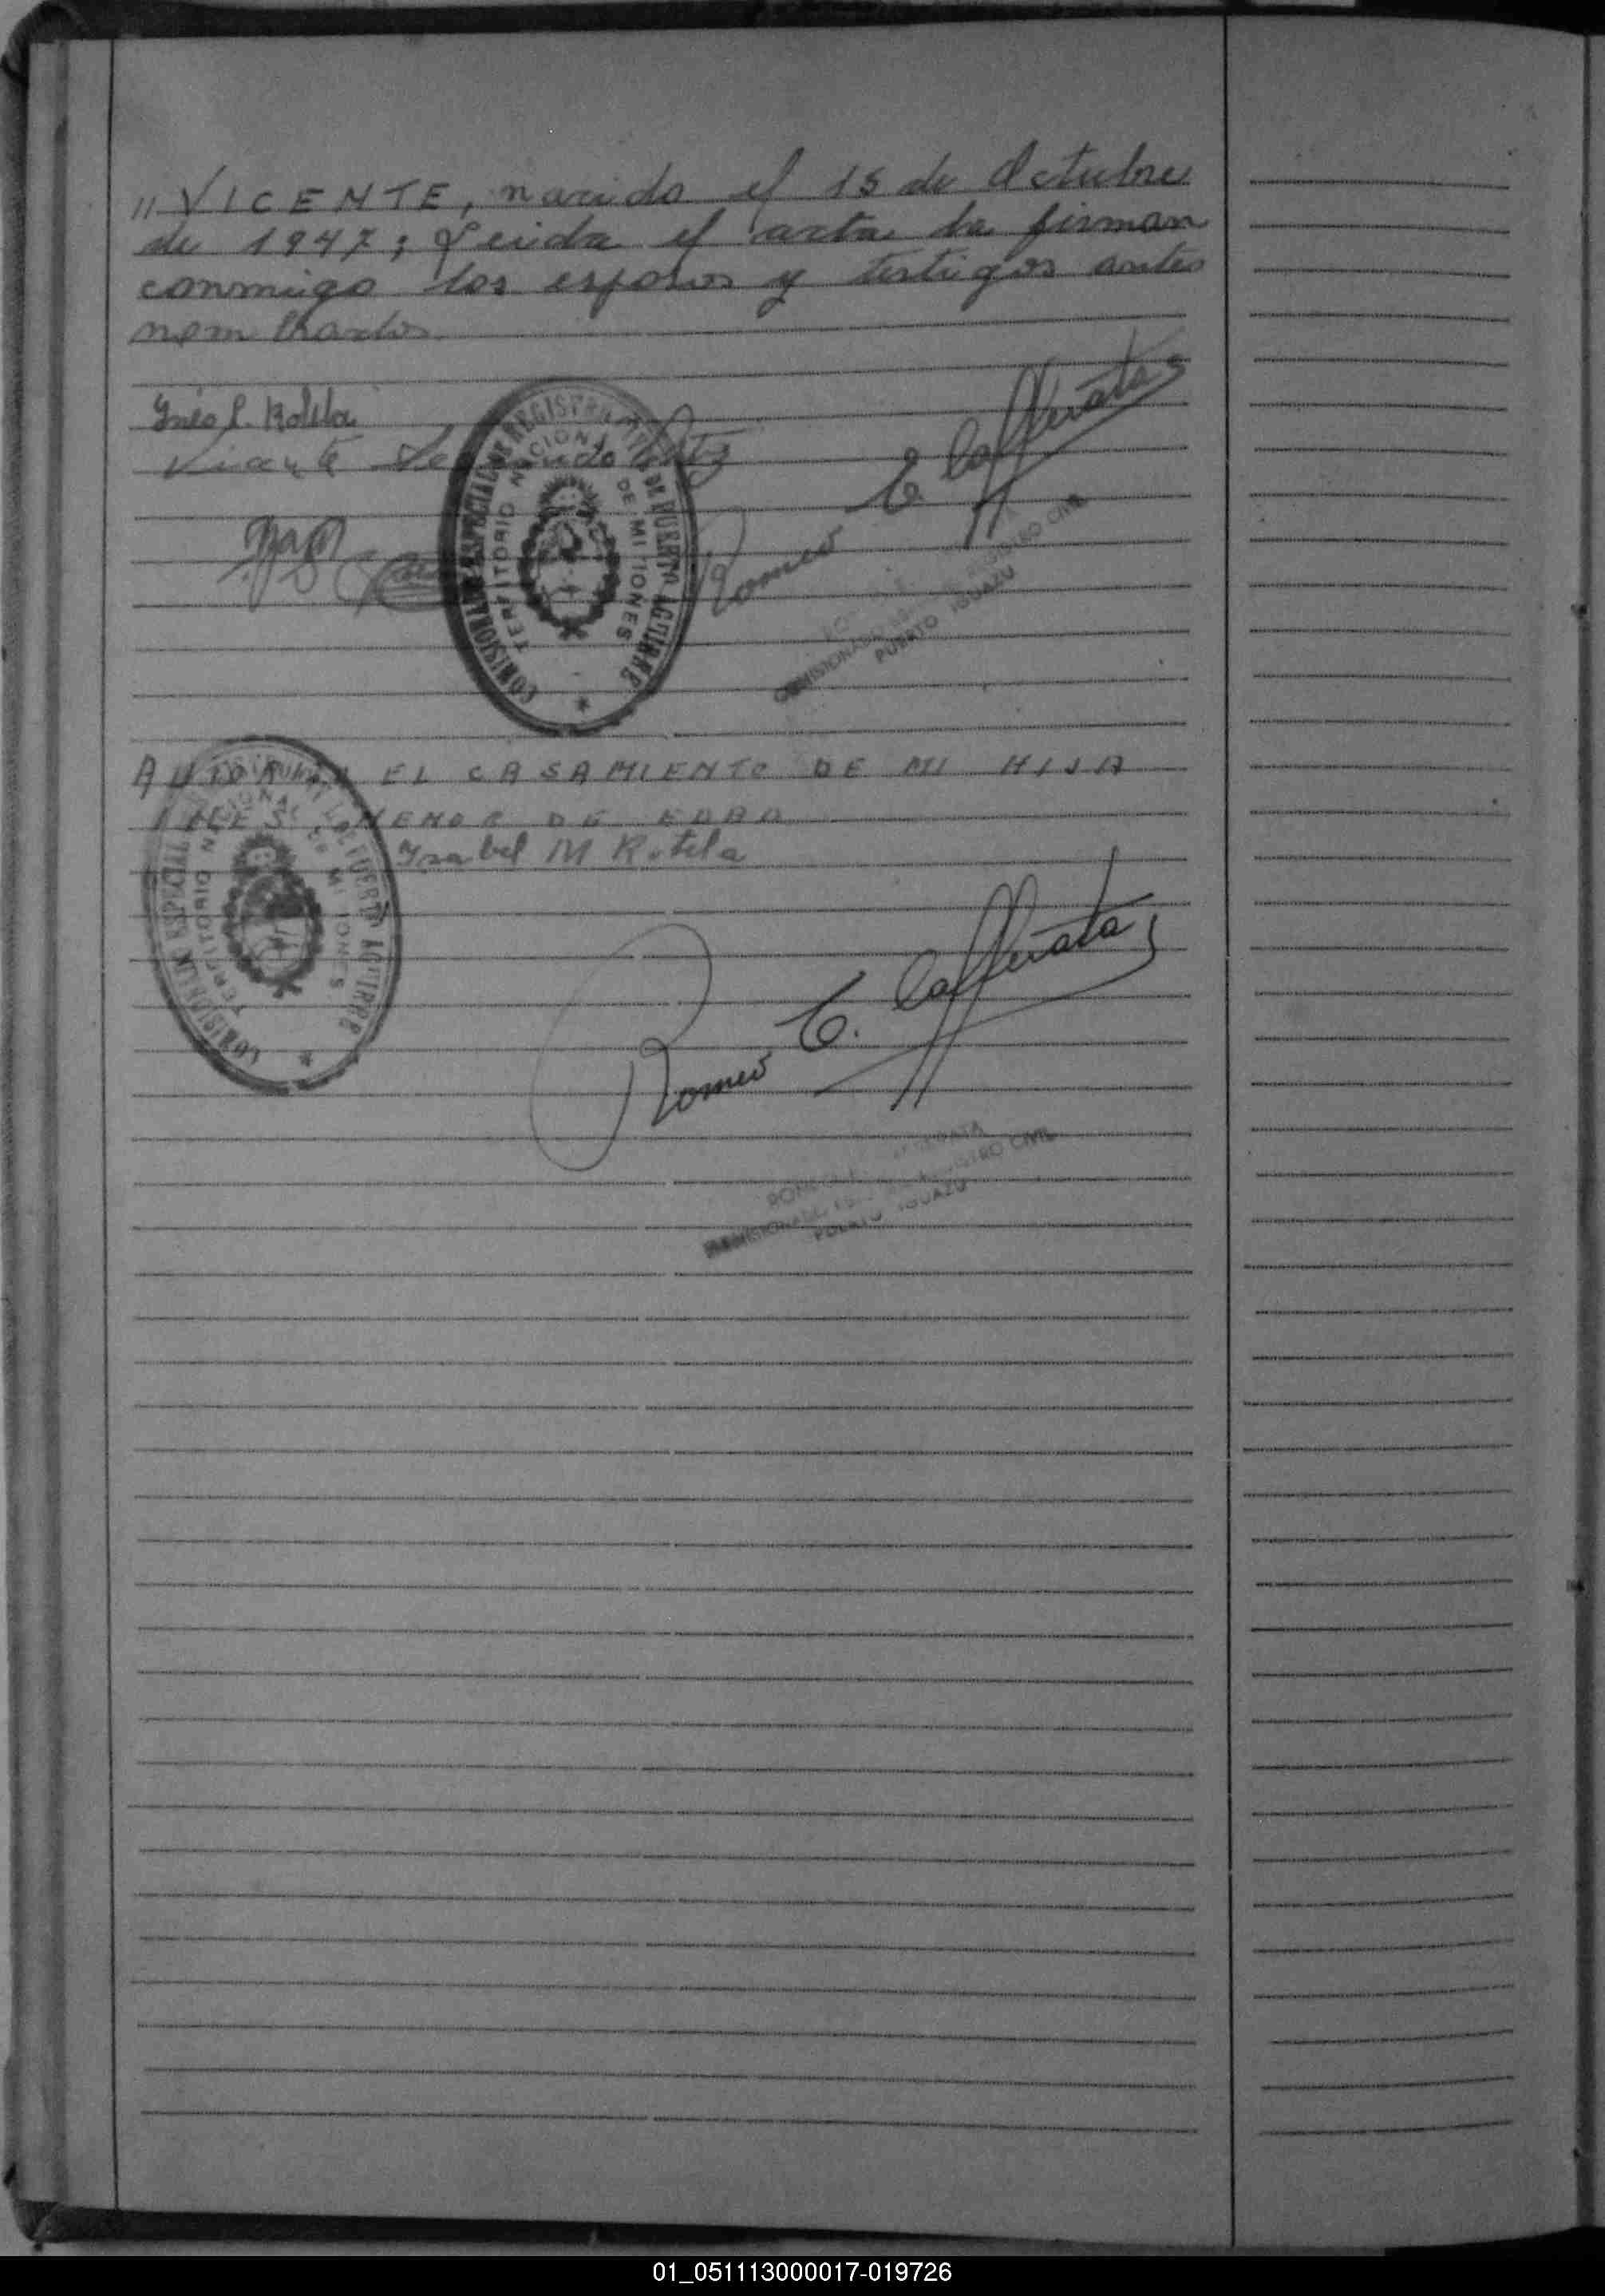 " VICENTE, nacido el 15 de Octubre
de 1947; Leida el acta la firman
conmigo los esposos y testigos antes
nombrados
Ynés L. Rotela
Vicente
Romeo C. Cafferata
COMISION ESPECIAL DE REGISTRO CIVIL DE PUERTO AGUIRRE
TERRITORIO NACIONAL DE MISIONES
COMISIONADO REGISTRO CIVIL
PUERTO IGUAZU
AUTORIZO EL CASAMIENTO DE MI HIJA
INES MENOR DE EDAD
Ysabel M Rotela
COMISION ESPECIAL DE PUERTO AGUIRRE
TERRITORIO NACIONAL DE MISIONES
Romeo C. Cafferata
COMISIONADO REGISTRO CIVIL
PUERTO IGUAZU
01_051113000017-019726